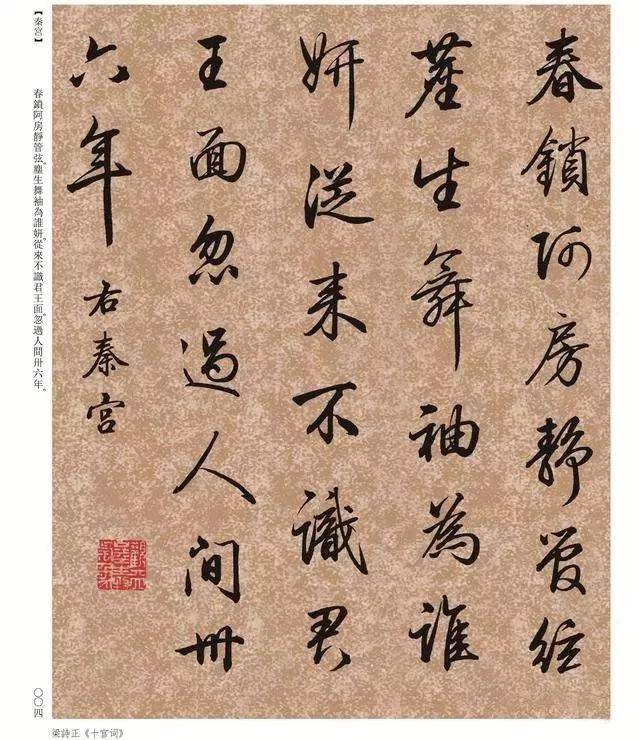 春鎖阿房靜管絃
塵生舞袖為誰
妍從来不識君
王面忽過人間卅
六年 右秦宮
【秦宮】 春鎖阿房靜管弦。塵生舞袖為誰妍。從來不識君王面。忽過人間卅六年。
〇〇四
梁詩正《十宫词》